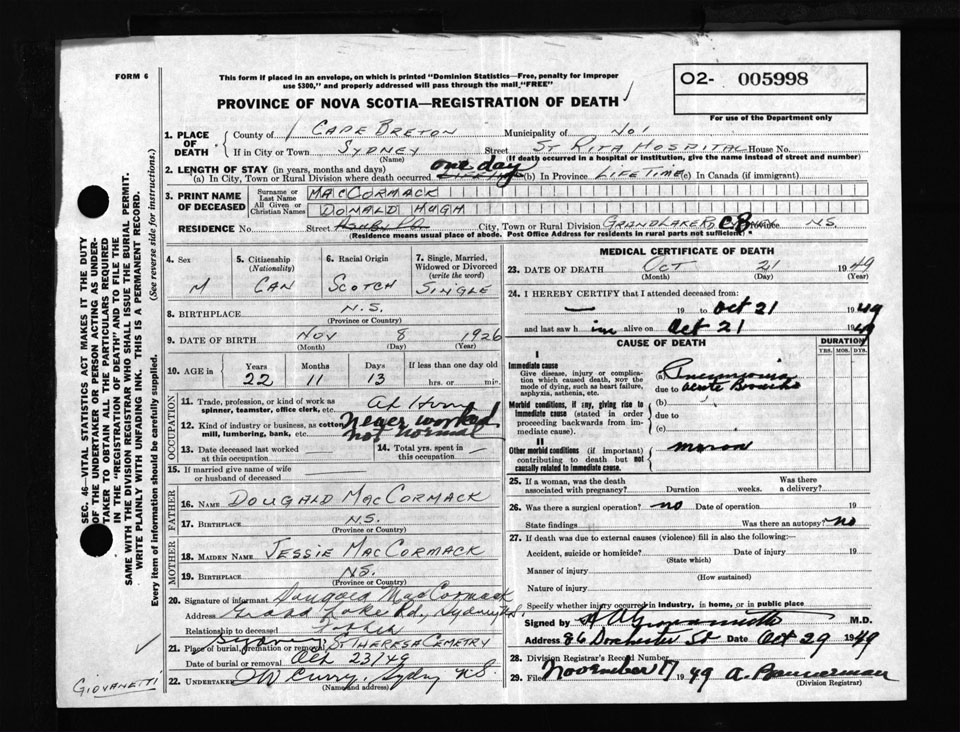 FORM 6
This form if placed in an envelope, on which is printed "Dominion Statistics—Free, penalty for improper
use $300," and properly addressed will pass through the mail "FREE"
O2- 005998
For use of the Department only
PROVINCE OF NOVA SCOTIA—REGISTRATION OF DEATH
1. PLACE OF DEATH
County of CAPE BRETON Municipality of No 1
If in City or Town SYDNEY Street ST RITA HOSPITAL House No.
(Name) (If death occurred in a hospital or institution, give the name instead of street and number)
2. LENGTH OF STAY (in years, months and days)
(a) In City, Town or Rural Division where death occurred one day (b) In Province LIFE TIME (c) In Canada (if immigrant)
3. PRINT NAME OF DECEASED
Surname or Last Name MACCORMACK
All Given or Christian Names DONALD HUGH
RESIDENCE No. Street City, Town or Rural Division GRAND LAKE RD CB Province NS
(Residence means usual place of abode. Post Office Address for residents in rural parts not sufficient)
4. Sex M
5. Citizenship (Nationality) CAN
6. Racial Origin SCOTCH
7. Single, Married, Widowed or Divorced (write the word) SINGLE
8. BIRTHPLACE N.S.
(Province or Country)
9. DATE OF BIRTH NOV 8 1926
(Month) (Day) (Year)
10. AGE in Years 22 Months 11 Days 13 If less than one day old hrs. or min.
OCCUPATION
11. Trade, profession, or kind of work as spinner, teamster, office clerk, etc. At Home
12. Kind of industry or business, as cotton mill, lumbering, bank, etc. Never worked
not normal
13. Date deceased last worked at this occupation
14. Total yrs. spent in this occupation
15. If married give name of wife or husband of deceased
FATHER
16. NAME DOUGALD MACCORMACK
17. BIRTHPLACE N.S.
(Province or Country)
MOTHER
18. MAIDEN NAME JESSIE MACCORMACK
19. BIRTHPLACE NS.
(Province or Country)
20. Signature of informant Dougald MacCormack
Address Grand Lake Rd, Sydney NS.
Relationship to deceased Father
21. Place of burial, cremation or removal Sydney ST THERESA CEMETRY
Date of burial or removal Oct 23/49
22. UNDERTAKER Curry, Sydney N.S.
(Name and address)
GIOVANETTI
MEDICAL CERTIFICATE OF DEATH
23. DATE OF DEATH OCT 21 1949
(Month) (Day) (Year)
24. I HEREBY CERTIFY that I attended deceased from:
— 19 to Oct 21 1949
and last saw him alive on Oct 21 1949
CAUSE OF DEATH
DURATION
YRS. MOS. DYS.
I
Immediate cause
Give disease, injury or complication which caused death, not the mode of dying, such as heart failure, asphyxia, asthenia, etc.
(a) Pneumonia
due to acute Bronchitis
Morbid conditions, if any, giving rise to immediate cause (stated in order proceeding backwards from immediate cause).
(b)
due to
(c)
II
Other morbid conditions (if important) contributing to death but not causally related to immediate cause.
moron
25. If a woman, was the death associated with pregnancy? Duration weeks. Was there a delivery?
26. Was there a surgical operation? no Date of operation 19
State findings Was there an autopsy? no
27. If death was due to external causes (violence) fill in also the following:—
Accident, suicide or homicide? Date of injury 19
(State which)
Manner of injury
(How sustained)
Nature of injury
Specify whether injury occurred in industry, in home, or in public place
Signed by M.D.
Address 86 Dorchester St Date Oct 29 1949
28. Division Registrar's Record Number
29. Filed November 17 1949 A. Bannerman
(Division Registrar)
SEC. 46—VITAL STATISTICS ACT MAKES IT THE DUTY
OF THE UNDERTAKER OR PERSON ACTING AS UNDER-
TAKER TO OBTAIN ALL THE PARTICULARS REQUIRED
IN THE "REGISTRATION OF DEATH" AND TO FILE THE
SAME WITH THE DIVISION REGISTRAR WHO SHALL ISSUE THE BURIAL PERMIT.
WRITE PLAINLY WITH UNFADING INK. THIS IS A PERMANENT RECORD.
Every item of information should be carefully supplied. (See reverse side for instructions.)